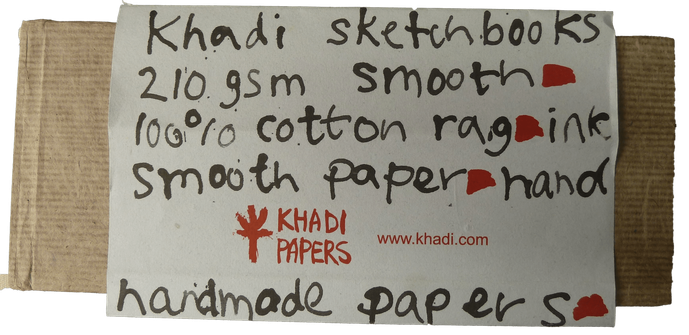 Khadi sketchbooks
210 gsm smooth
100% cotton rag ink
smooth paper hand
KHADI
PAPERS
www.khadi.com
handmade papers